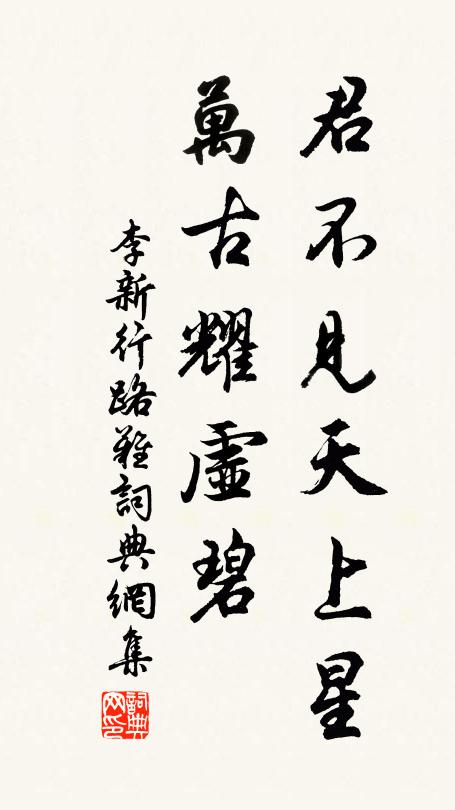 君不見天上星
萬古耀虛碧
李新行路難詞典網集
詞典網印